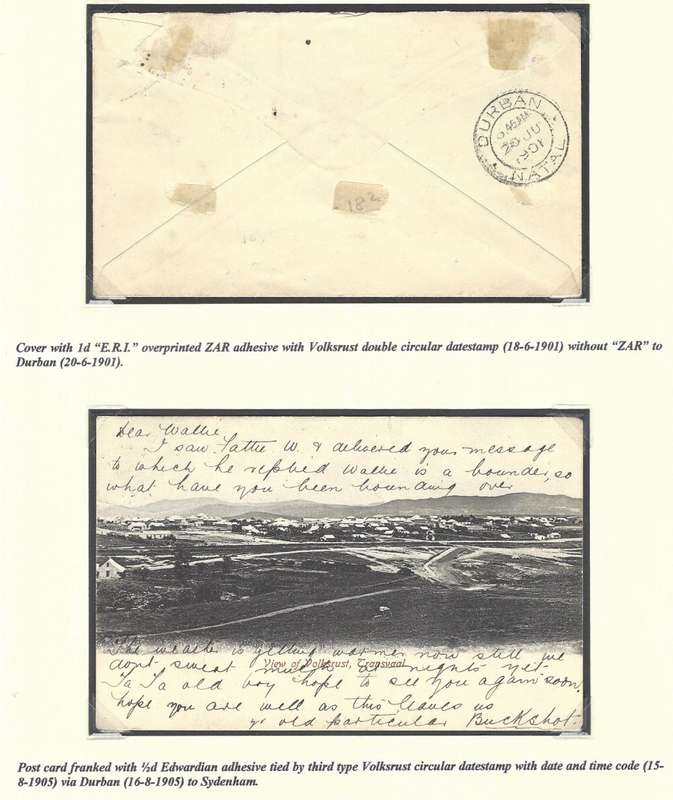 DURBAN
5.45AM
20 JU
1901
NATAL
18 2
Cover with 1d “E.R.I.” overprinted ZAR adhesive with Volksrust double circular datestamp (18-6-1901) without “ZAR” to
Durban (20-6-1901).
Dear Wallie
I saw Fattie W. & delivered your message
to which he replied Wallie is a bounder, so
what have you been bounding over
The weather is getting warmer now still we
View of Volksrust, Transvaal
dont sweat much at nights yet
Ta Ta old boy hope to see you again soon,
hope you are well as this leaves us
yr old particular Buckshot.
Post card franked with ½d Edwardian adhesive tied by third type Volksrust circular datestamp with date and time code (15-
8-1905) via Durban (16-8-1905) to Sydenham.